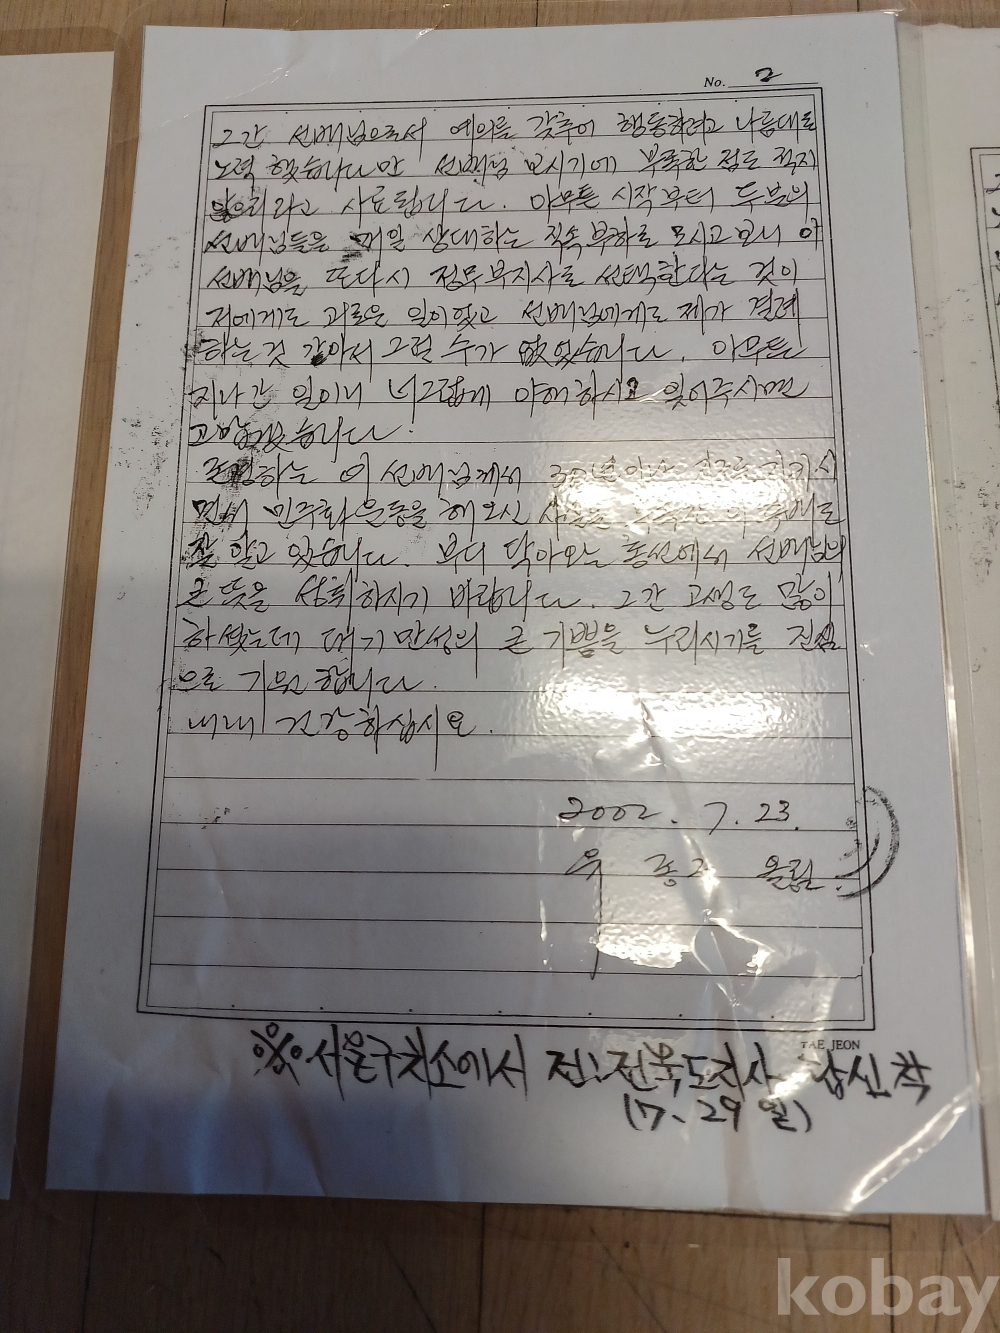 No. 2
그간 선배님으로서 예의를 갖추어 행동하려고 나름대로
노력 했습니다만 선배님 모시기에 부족한 점도 적지
않으리라고 사료됩니다. 아무튼 시작부터 두분의
선배님들을 매일 상대하는 직속부하로 모시고 보니 이
선배님을 또다시 정무부지사로 선택한다는 것이
저에게도 괴로운 일이었고 선배님에게도 제가 결례
하는것 같아서 그럴 수가 없었습니다. 아무튼
지나간 일이니 너그럽게 이해하시고 잊어주시면
고맙겠습니다.
존경하는 이 선배님께서 30년 지키시
면서 민주화운동을 해오신
잘 알고 있습니다. 부디 닥아오는 총선에서 선배님의
큰 뜻을 성취하시기 바랍니다. 그간 고생도 많이
하셨는데 대기만성의 큰 기쁨을 누리시기를 진심
으로 기원합니다.
내내 건강하십시오.
2002. 7. 23.
유 종 근 올림
TAE JEON
※.서울구치소에서 전!전북도지사 답신착
(7、29일)
kobay